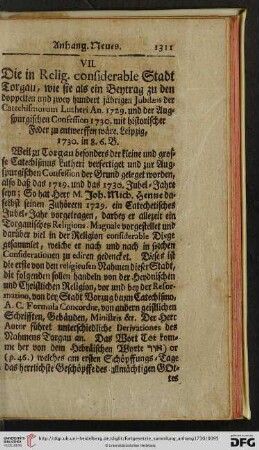 Anhang. Neues. 1311
VII.
Die in Relig. considerable Stadt
Torgau, wie sie als ein Beytrag zu den
doppelten und zwey hundert jährigen Jubdens der
Catechismorum Lutheri An. 1729. und der Aug-
spurgischen Confession 1730. mit historischer
Feder zu entwerffen wäre. Leipzig,
1730. in 8. 6. B.
Weil zu Torgau besonders der kleine und gros-
se Catechismus Lutheri verfertiget und zur Aug-
spurgischen Confession der Grund geleget worden,
also daß das 1729. und das 1730. Jubel-Jahre
seyn; So hat Herr M. Joh. Mich. Henne da-
selbst seinen Zuhörern 1729. ein Catechetisches
Jubel-Jahr vorgetragen, darbey er allezeit ein
Torgauisches Religions-Magnale vorgestellet und
darüber viel in der Religion considerable Dinge
gesammlet, welche er nach und nach in solchen
Considerationen zu ediren gedencket. Dieses ist
die erste von den religieusen Nahmen dieser Stadt,
die folgenden sollen handeln von der Heydnischen
und Christlichen Religion, vor und bey der Refor-
mation, von der Stadt Vorzug da im Catechismo,
A. C. Formula Concordiæ, von andern geistlichen
Schrifften, Gebäuden, Ministris &c. Der Herr
Autor führet unterschiedliche Derivationes des
Nahmens Torgau an. Das Wort Tor kom-
me her von dem Hebräischen Worte or
(p. 46.) welches am ersten Schöpffungs-Tage
das herrlichste Geschöpffe des allmächtigen GOt-
tes
http://digi.ub.uni-heidelberg.de/diglit/fortgesetzte_sammlung_anhang1730/0095
© Universitätsbibliothek Heidelberg
gefördert durch die
DFG